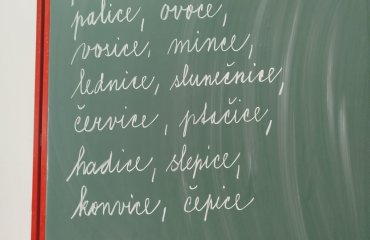 palice, ovoce,
vosice, mince,
lednice, slunečnice,
červice, ptačice,
hadice, slepice,
konvice, čepice